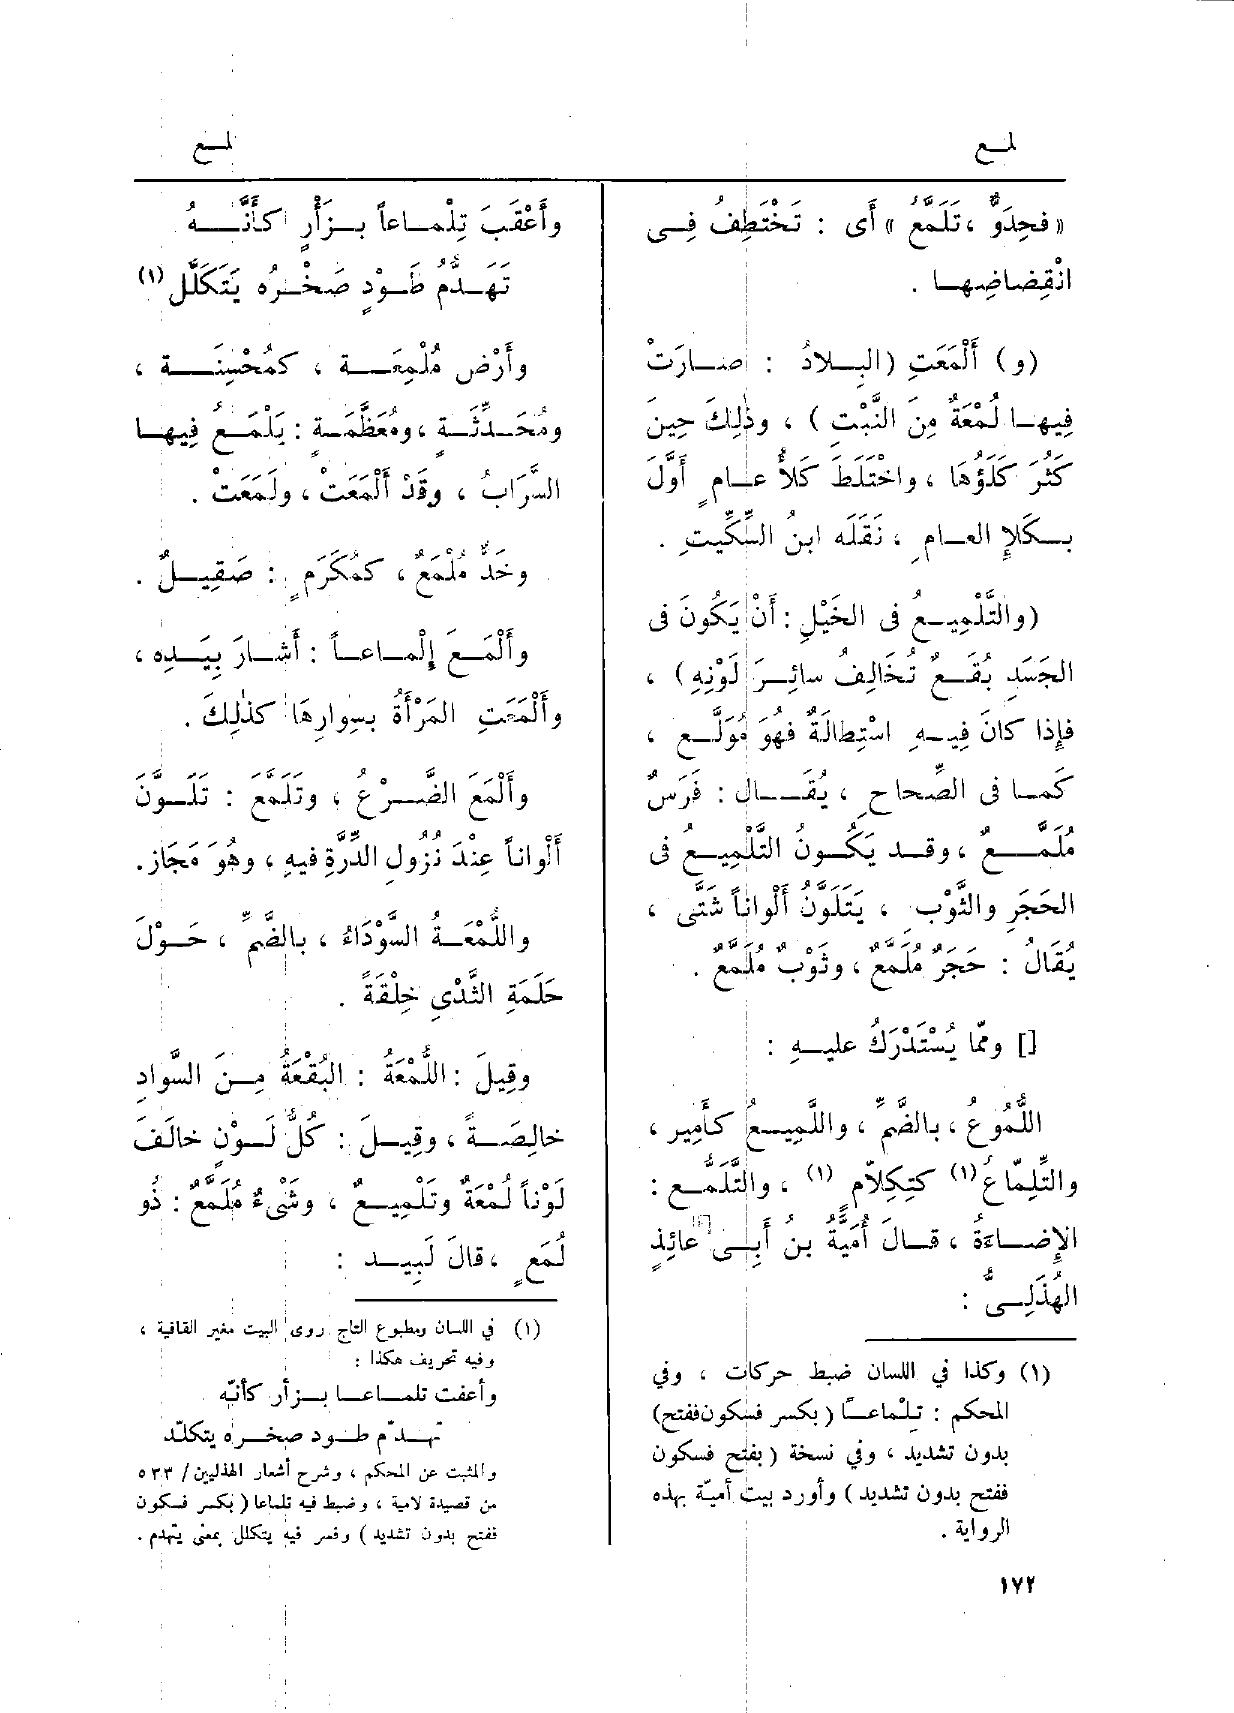 لمع
لمع
« فحِدَوٌّ ، تَلَمَّعُ » أَى : تَخْتَطِفُ فِى
انْقِضاضِها .
(و) أَلْمَعَتِ (البِلادُ : صارَتْ
فِيها لُمْعَةٌ مِنَ النَّبْتِ) ، وذٰلِكَ حِينَ
كَثُرَ كَلَؤُهَا ، واخْتَلَطَ كَلأُ عامٍ أَوَّلَ
بكَلإِ العامِ ، نَقَلَه ابنُ السِّكِّيتِ .
(والتَّلْمِيعُ فى الخَيْلِ : أَنْ يَكُونَ فى
الجَسَدِ بُقَعٌ تُخالِفُ سائِرَ لَوْنِهِ) ،
فإِذا كانَ فِيهِ اسْتِطالَةٌ فهُوَ مُوَلَّع ،
كما فى الصِّحاحِ ، يُقَال : فَرَسٌ
مُلَمَّعٌ ، وقد يَكُونُ التَّلْمِيعُ فى
الحَجَرِ والثَّوْبِ ، يَتَلَوَّنُ أَلْواناً شَتَّى ،
يُقَالُ : حَجَرٌ مُلَمَّعٌ ، وثَوْبٌ مُلَمَّعٌ .
[] ومّما يُسْتَدْرَكُ عليهِ :
اللُّمُوعُ ، بالضَّمِّ ، واللَّمِيعُ كأَمِير ،
والتِّلِمّاعُ (١) كتِكِلاّمٍ (١) ، والتَّلَمُّع :
الإِضاءَةُ ، قالَ أُمَيَّةُ بنُ أَبِى عائِذٍ
الهُذَلِىُّ :
(١) وكذا في اللسان ضبط حركات ، وفي
المحكم : تِلْماعـًا (بكسر فسكون ففتح)
بدون تشديد ، وفي نسخة (بفتح فسكون
ففتح بدون تشديد) وأورد بيت أميّة بهذه
الرواية .
وأَعْقَبَ تِلْماعاً بِزَأْرٍ كأَنَّهُ
تَهَدُّمُ طَوْدٍ صَخْرُه يَتَكَلَّل (١)
وأَرْض مُلْمِعَة ، كمُحْسِنَة ،
ومُحَدِّثَةٍ ، ومُعَظَّمَةٍ : يَلْمَعُ فِيها
السَّرَابُ ، وقَدْ أَلْمَعَتْ ، ولَمَعَت .
وخَدٌّ مُلْمَعٌ ، كمُكْرَمٍ : صَقِيلٌ .
وأَلْمَعَ إِلْماعاً : أَشارَ بِيَدِه ،
وأَلْمَعَتِ المَرْأَةُ بسِوارِهَا كذٰلِكَ .
وأَلْمَعَ الضَّرْعُ ، وتَلَمَّعَ : تَلَوَّنَ
أَلْواناً عِنْدَ نُزُولِ الدِّرَّةِ فيهِ ، وهُوَ مَجَاز .
واللُّمْعَةُ السَّوْدَاءُ ، بالضَّمِّ ، حَوْلَ
حَلَمَةِ الثَّدْىِ خِلْقَةً .
وقِيلَ : اللُّمْعَةُ : البُقْعَةُ مِنَ السَّوادِ
خالِصَةً ، وقِيلَ : كُلُّ لَوْنٍ خالَفَ
لَوْناً لُمْعَةٌ وتَلْمِيعٌ ، وشَىْءٌ مُلَمَّعٌ : ذُو
لُمَعٍ ، قالَ لَبِيد :
(١) في اللسان ومطبوع التاج روى البيت مغير القافية ،
وفيه تحريف هكذا :
وأعفت تلماعا بزأر كأنّه
تهدّم طود صخره يتكلّد
والمثبت عن المحكم ، وشرح أشعار الهذليين / ٥٣٣
من قصيدة لامية ، وضبط فيه تلماعا (بكسر فسكون
ففتح بدون تشديد) وفسر فيه يتكلل بمعنى يتهدم .
١٧٢